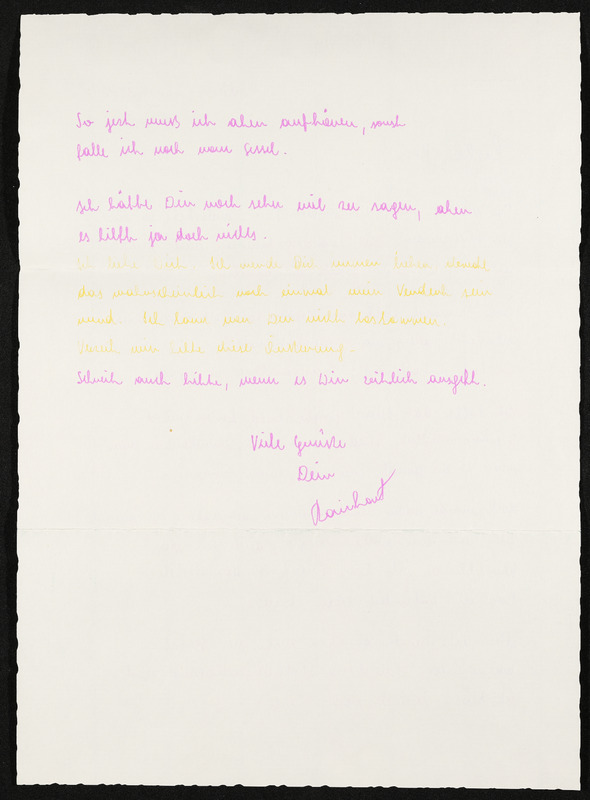 So jetzt muss ich aber aufhören, sonst
falle ich noch vom Sessel.
Ich hätte Dir noch sehr viel zu sagen, aber
es hilft ja doch nichts.
Ich liebe Dich. Ich werde Dir immer
das wahrscheinlich noch einmal mein Verderb sein
wird. Ich kann von Dir nicht loskommen.
Verzeih mir bitte diese Äusserung.
Schreib auch bitte, wenn es Dir zeitlich ausgeht.
Viele Grüsse
Dein
Reinhard